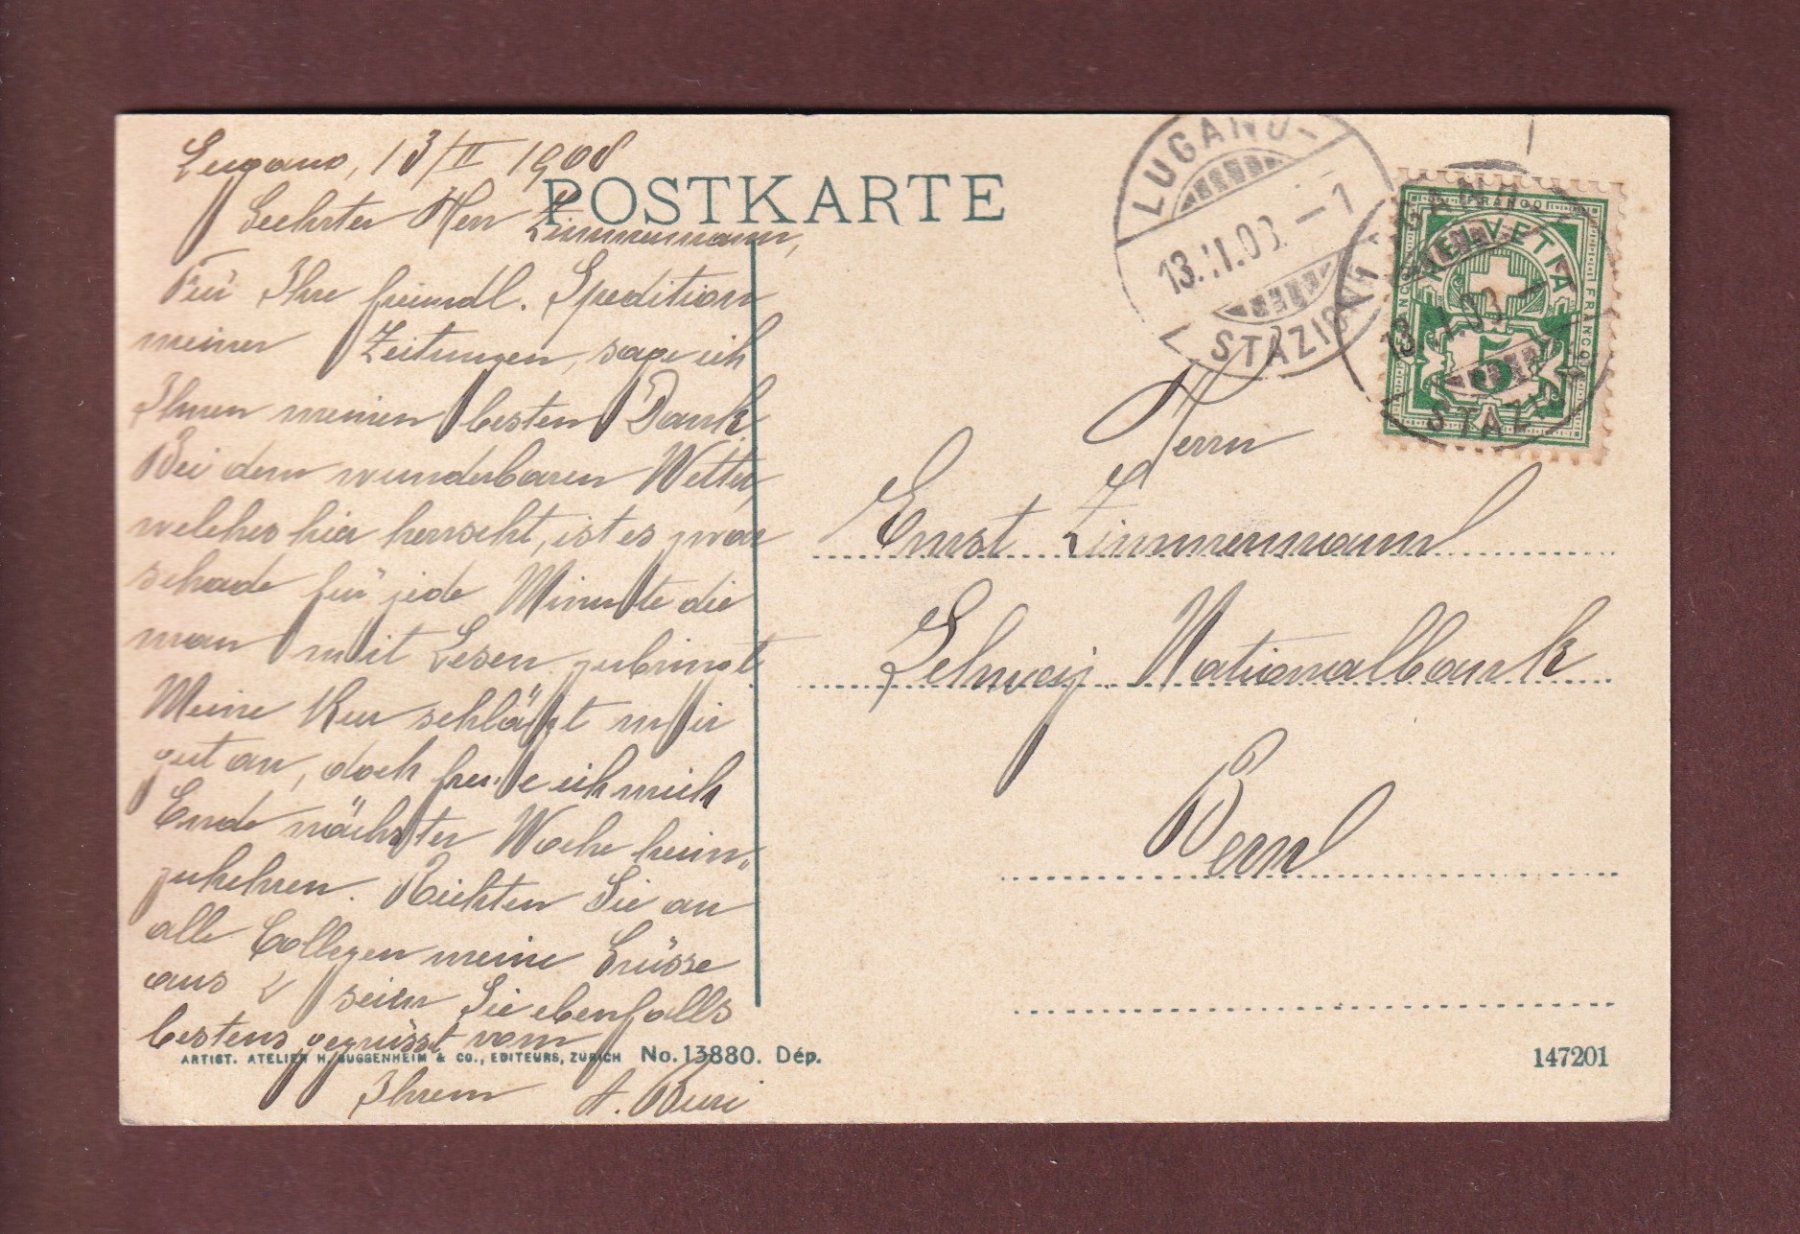 Lugano, 13/II 1908
POSTKARTE
Geehrter Herr Zimmermann,
Für Ihre freundl. Spedition
meiner Zeitungen, sage ich
Ihnen meinen besten Dank.
Bei dem wunderbaren Wetter,
welches hier herrscht, ist es zwar
schade für jede Minute die
man mit Lesen zubringt.
Meine Kur schlägt mir
gut an, doch freue ich mich
Ende nächster Woche heim„
zukehren. Richten Sie an
alle Collegen meine Grüsse
aus & seien Sie ebenfalls
bestens gegrüsst vom
Ihrem A. Buri
ARTIST. ATELIER H. GUGGENHEIM & CO., EDITEURS, ZÜRICH No. 13880. Dép.
LUGANO
13.II.08.–1
STAZIONE
FRANCO
HELVETIA
5
STAZIONE
Herrn
Ernst Zimmermann
Schweiz. Nationalbank
Bern
147201